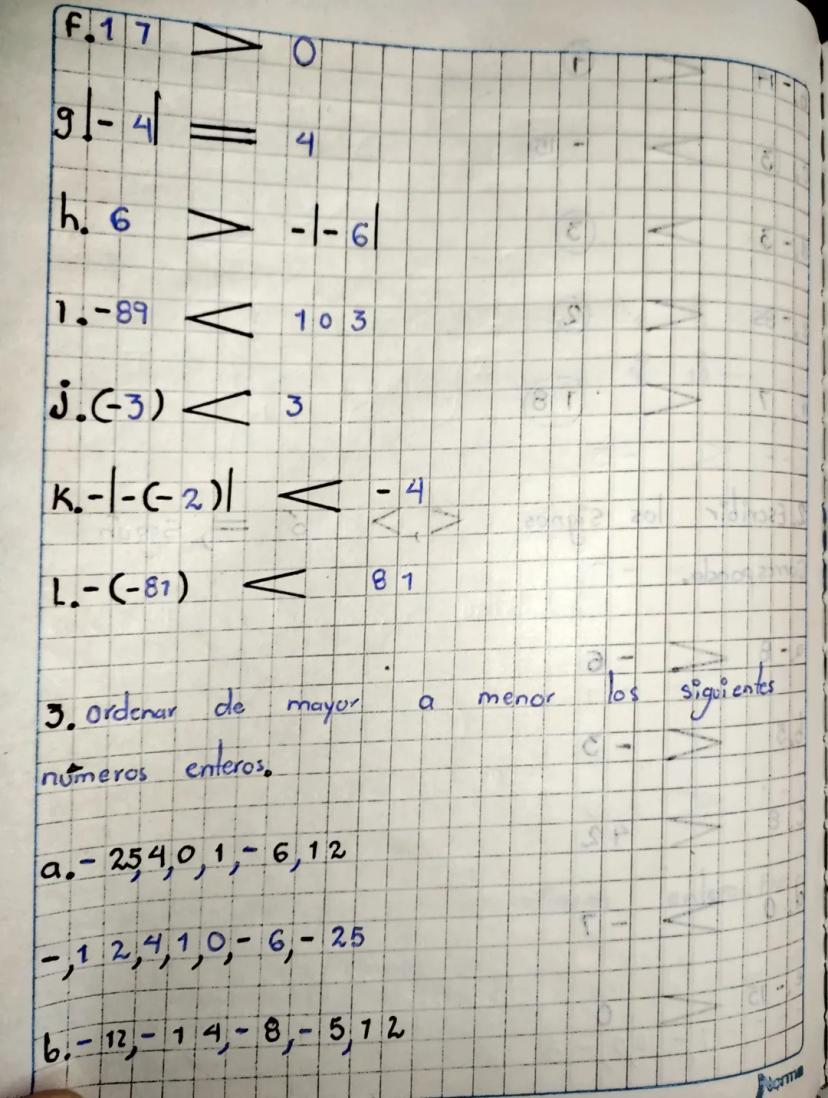 f. 17 > 0
g |-4| = 4
h. 6 > -|-6|
i. -89 < 103
j. (-3) < 3
K. -|-(-2)| < -4
L. -(-81) < 81
3. Ordenar de mayor a menor los siguientes
números enteros.
a. -25,4,0,1,-6,12
-,12,4,1,0,-6,-25
b. -12,-14,-8,-5,12
Norma